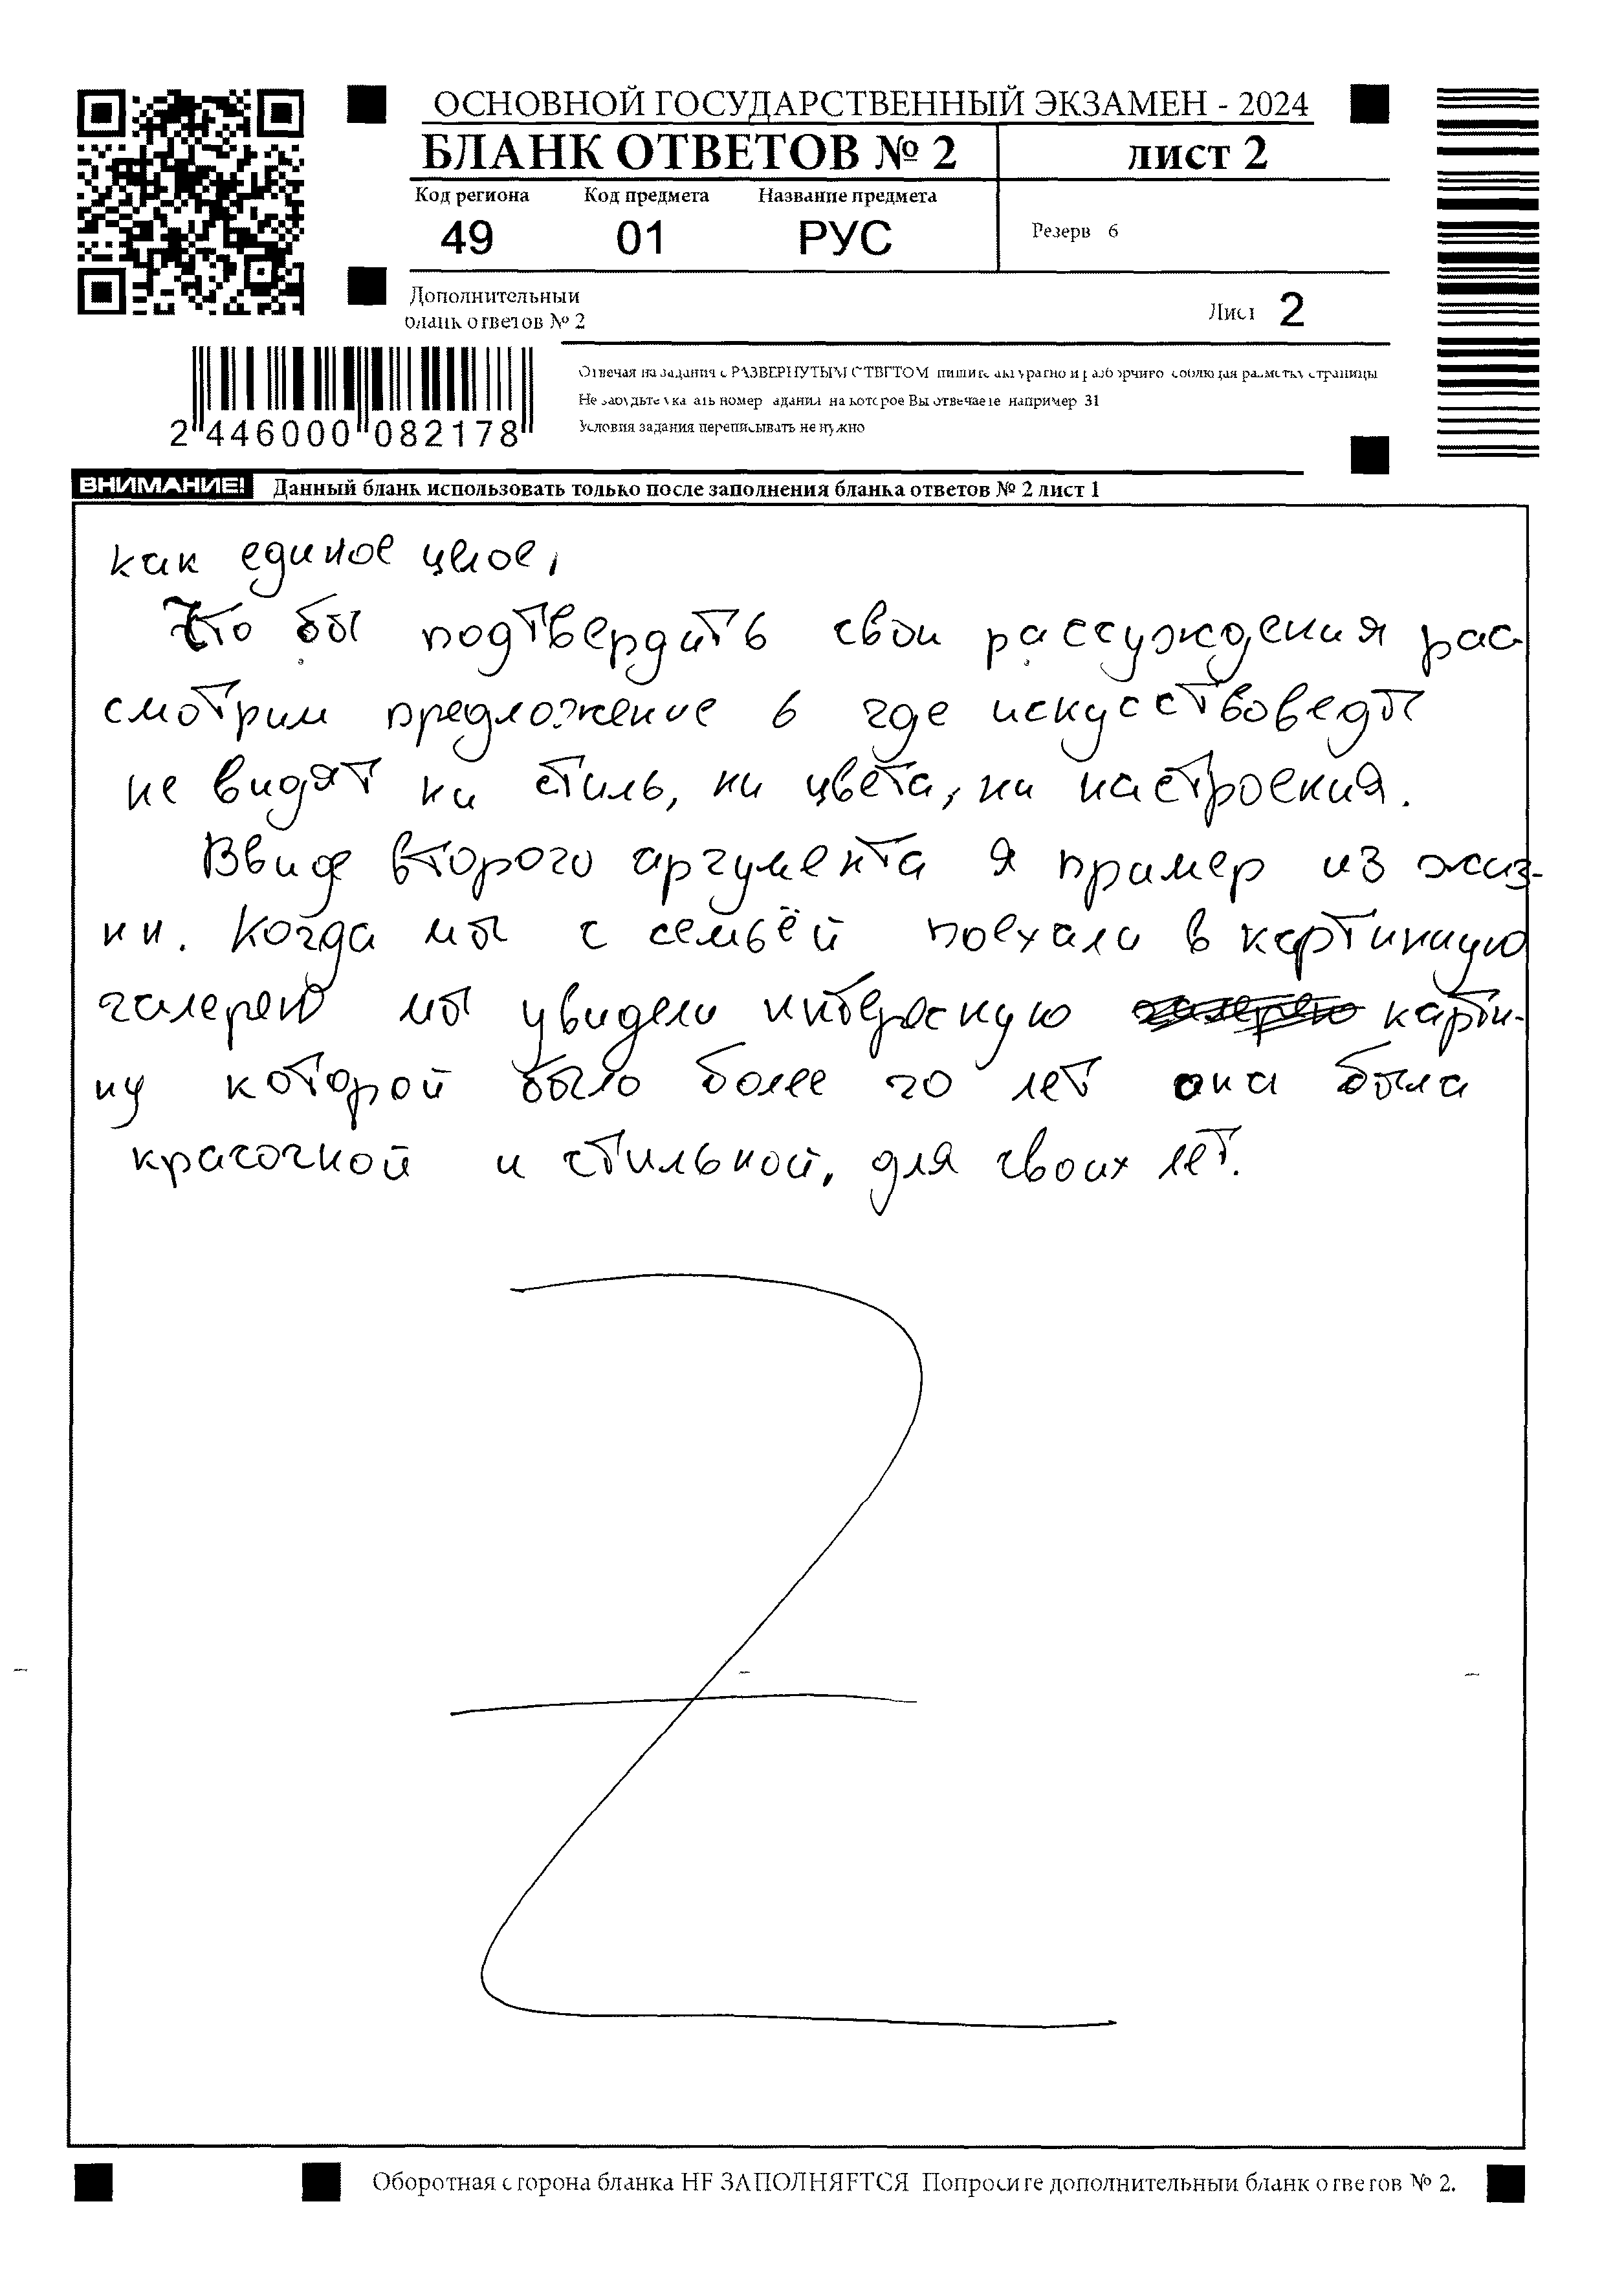 ОСНОВНОЙ ГОСУДАРСТВЕННЫЙ ЭКЗАМЕН - 2024
БЛАНК ОТВЕТОВ № 2
лист 2
Код региона
Код предмета
Название предмета
49
01
РУС
Резерв 6
Дополнительный
бланк ответов № 2
Лист 2
Отвечая на задания с РАЗВЕРНУТЫМ ОТВЕТОМ пишите аккуратно и разборчиво соблюдая разметку страницы
Не забудьте указать номер задания на которое Вы отвечаете например 31
Условия задания переписывать не нужно
2 446000 082178
ВНИМАНИЕ!
Данный бланк использовать только после заполнения бланка ответов № 2 лист 1
как единое целое,
Что бы подтвердить свои рассуждения рас
смотрим предложение 6 где искусствоведы
не видят ни стиль, ни цвета, ни настроения.
Ввиде второго аргумента я пример из жиз-
ни. Когда мы с семьёй поехали в картинную
галерею мы увидели интересную карти-
ну которой было более 20 лет она была
красочной и стильной, для своих лет.
Оборотная сторона бланка НЕ ЗАПОЛНЯЕТСЯ Попросите дополнительный бланк ответов № 2.